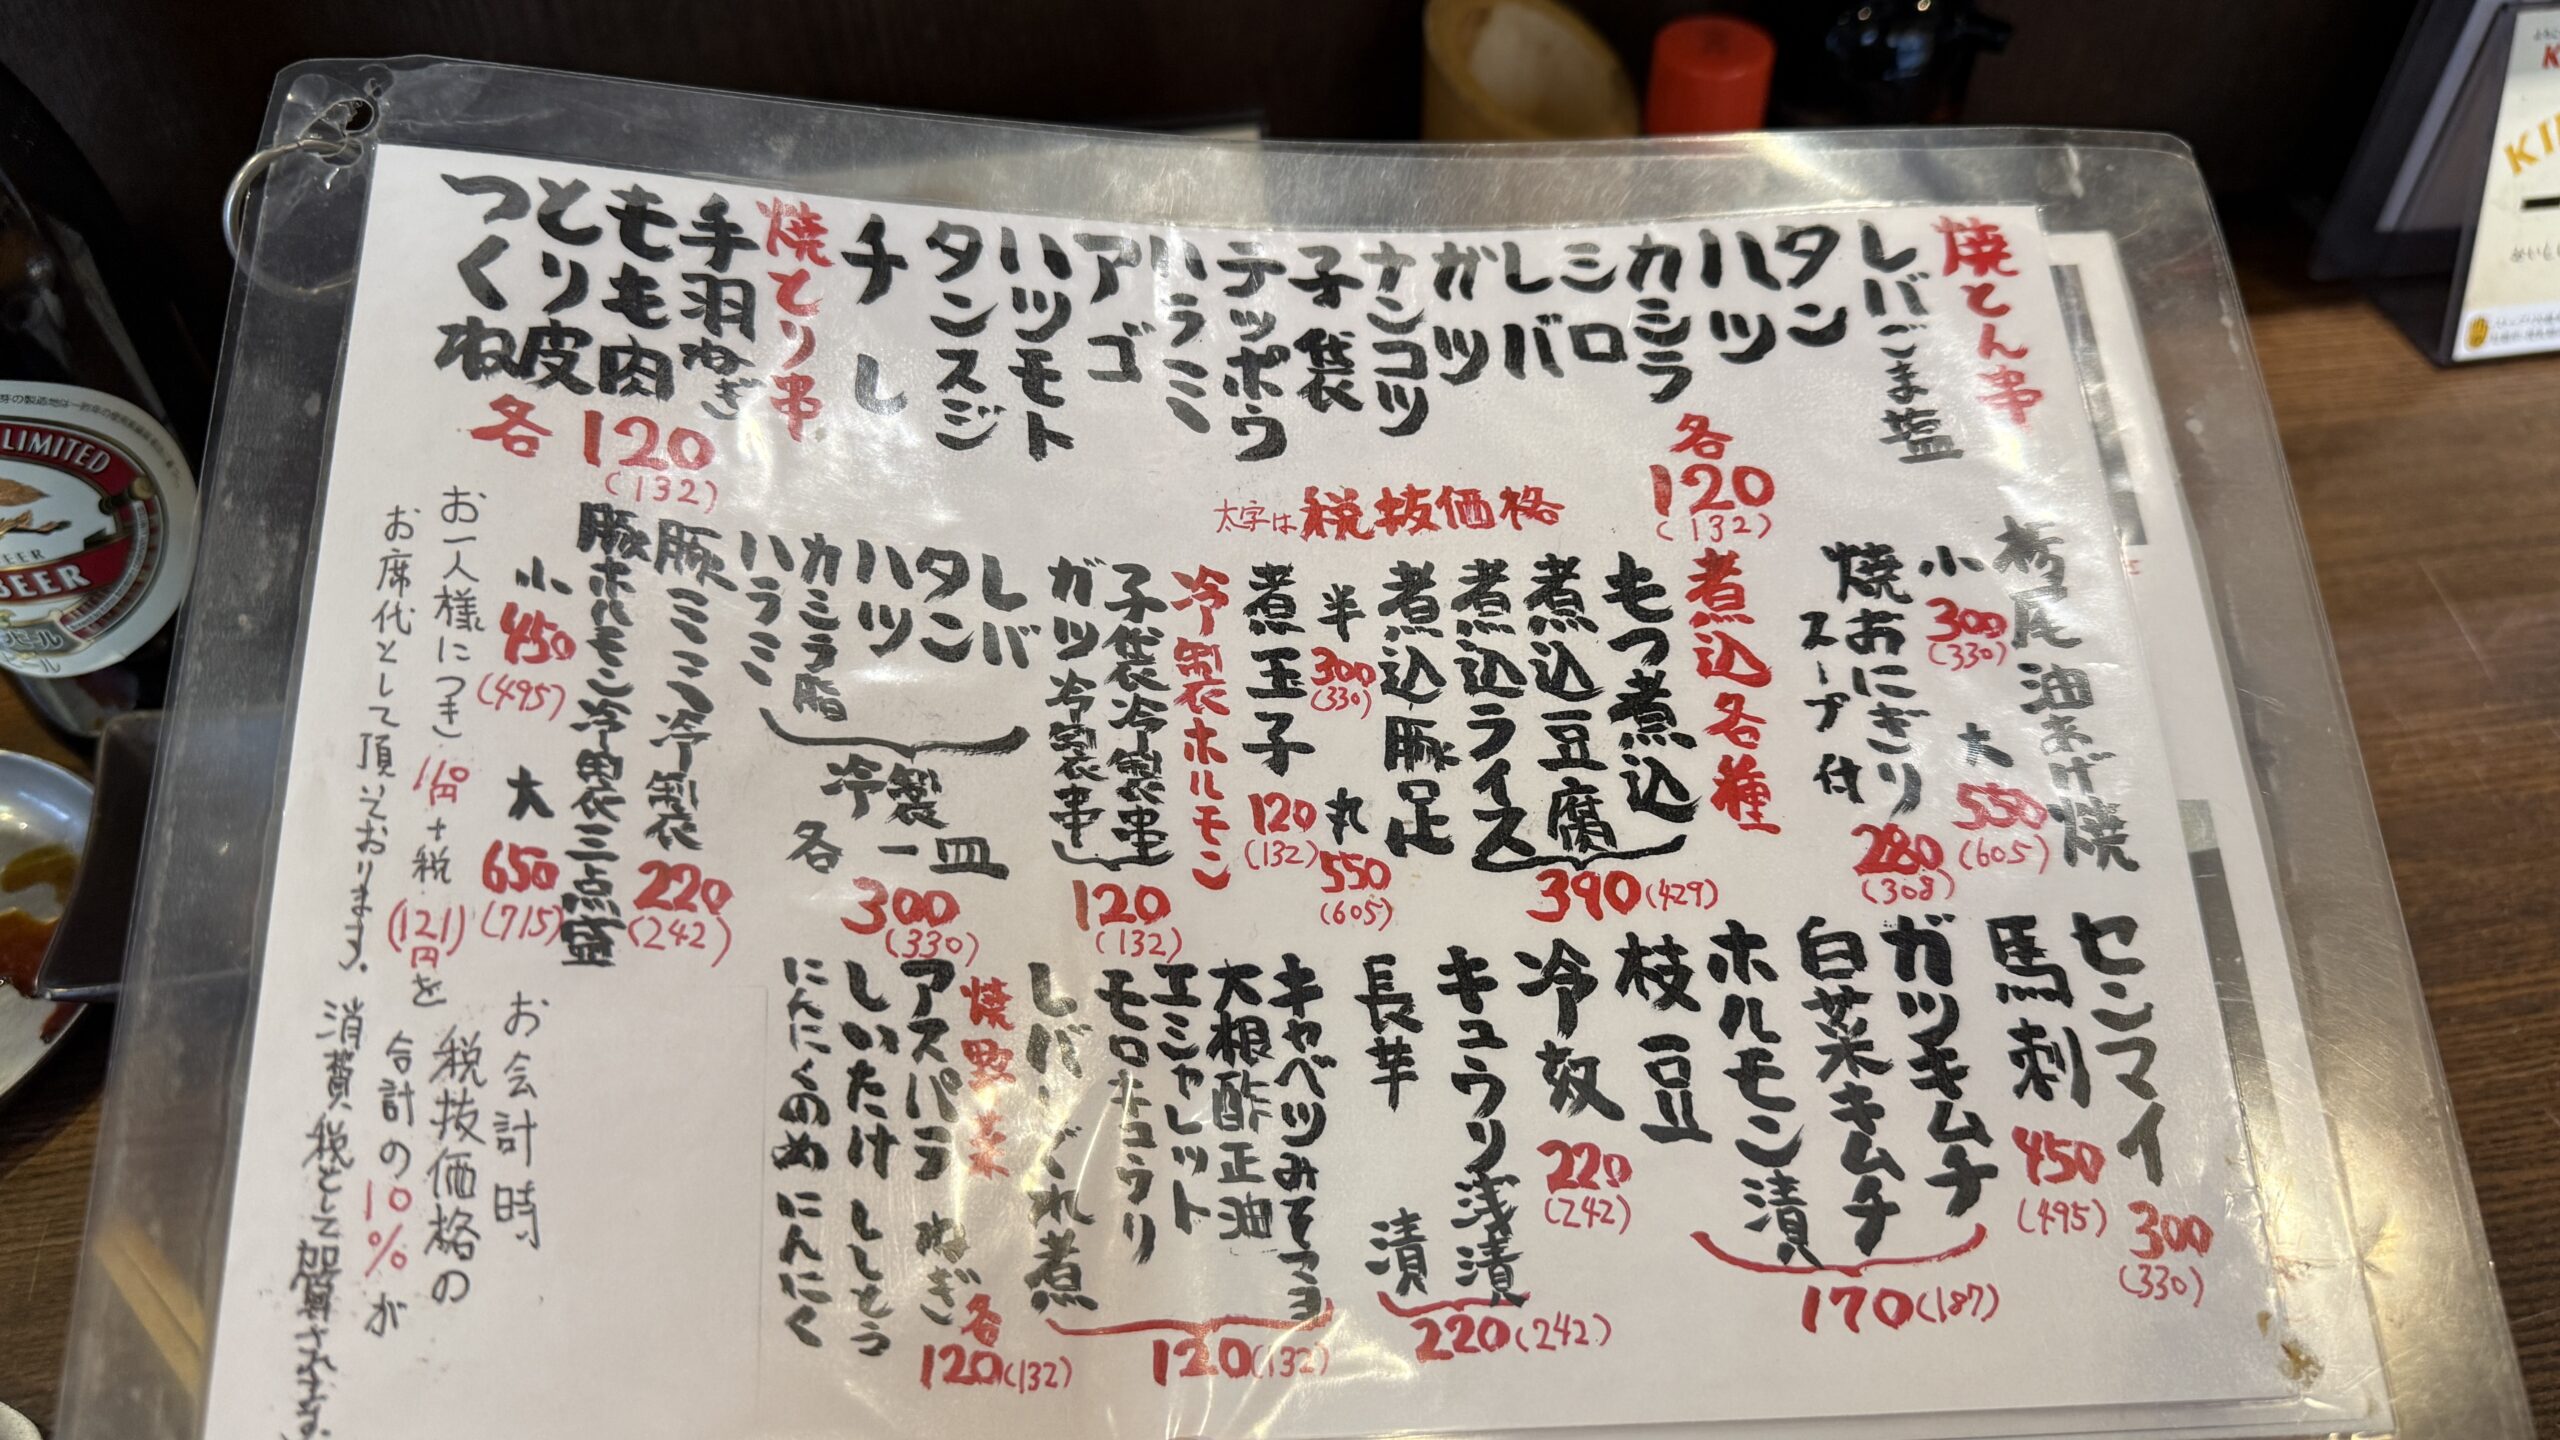 焼とん串
レバごま塩
タン
ハツ
カシラ
シロ
レバ
ガツ
ナンコツ
子袋
テッポウ
ハラミ
アゴ
ハツモト
タンスジ
チレ
各
120
(132)
焼とり串
手羽ねぎ
もも肉
とり皮
つくね
各 120
(132)
太字は 税抜価格
栃尾油あげ焼
小 300
(330)
大 550
(605)
焼おにぎり
スープ付
280
(308)
煮込各種
もつ煮込
煮込豆腐
煮込ライス
390(429)
煮込豚足
半 300
(330)
丸 550
(605)
煮玉子
120
(132)
冷製ホルモン
子袋冷製串
ガツ冷製串
120
(132)
レバ
タン
ハツ
カシラ脂
ハラミ
冷製一皿
各 300
(330)
豚ミミ冷製
220
(242)
豚ホルモン冷製三点盛
小 450
(495)
大 650
(715)
お一人様につき 110円+税 (121)円を
お席代として頂いております。
センマイ 300
(330)
馬刺 450
(495)
ガツキムチ
白菜キムチ
ホルモン漬
170(187)
枝豆
冷奴 220
(242)
キュウリ浅漬
長芋 漬
220(242)
キャベツみそマヨ
大根酢正油
エシャレット
モロキュウリ
レバーぐれ煮
120(132)
焼野菜
アスパラ ねぎ
しいたけ ししとう
にんにくのめ にんにく
各
120(132)
お会計時
税抜価格の
合計の10%が
消費税として加算されます
LIMITED
BEER